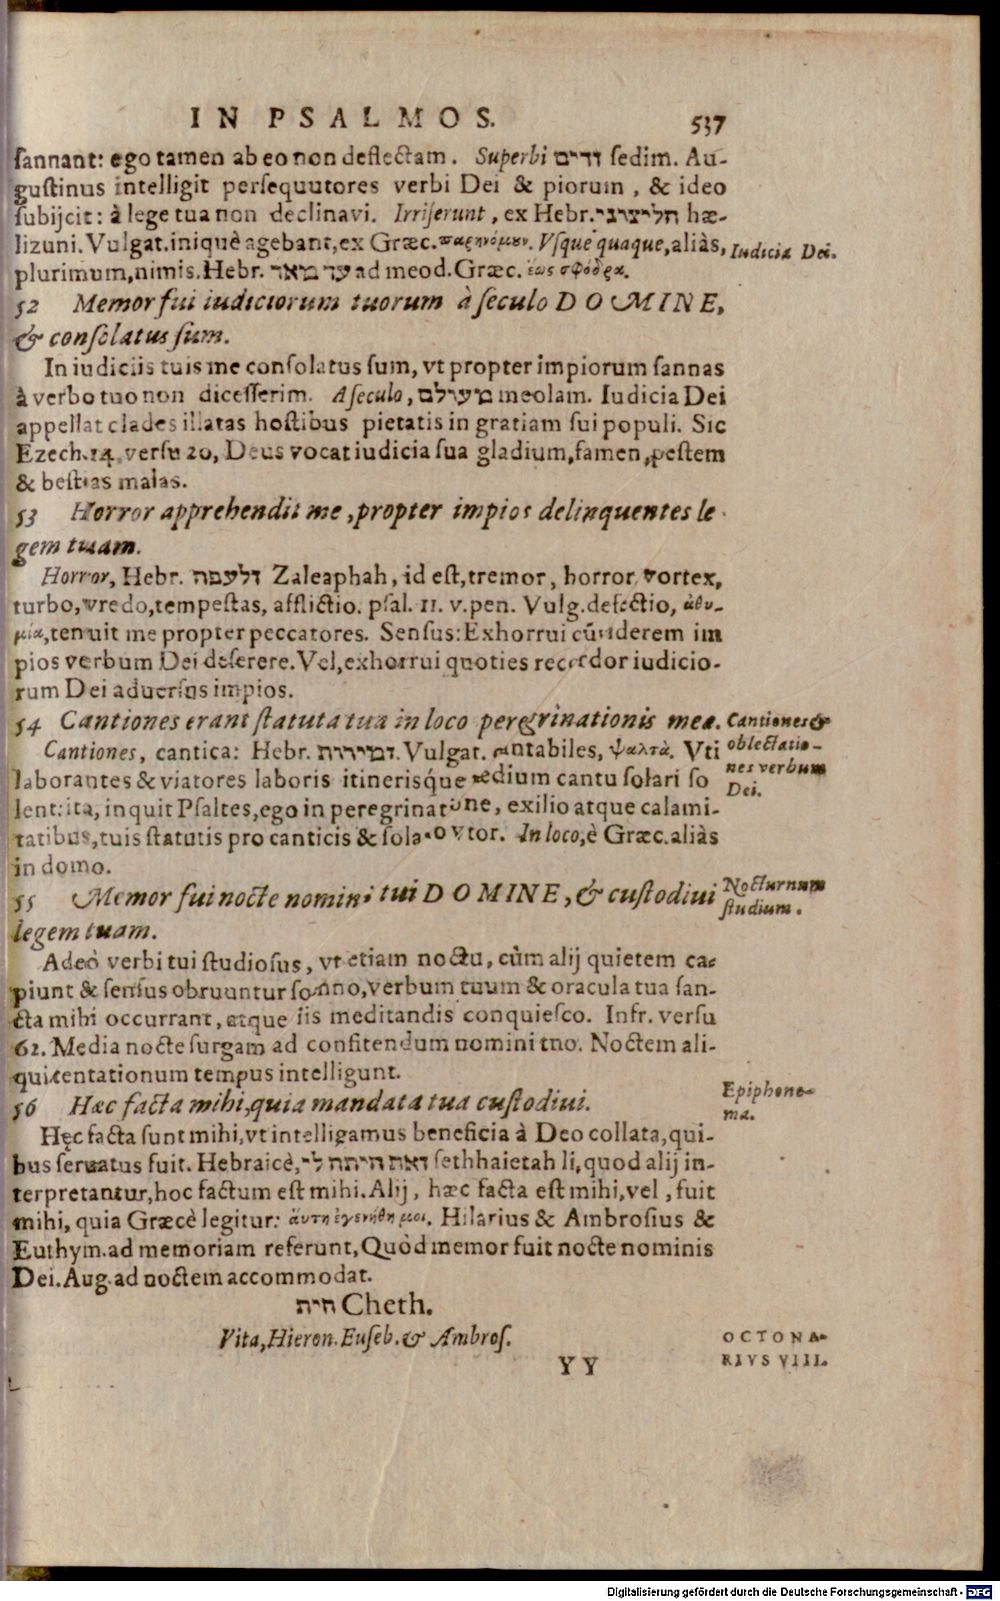 IN PSALMOS. 537
ſannant: ego tamen ab eo non deflectam. Superbi זדים ſedim. Au-
guſtinus intelligit perſequutores verbi Dei & piorum, & ideo
ſubijcit: à lege tua non declinavi. Irriſerunt, ex Hebr. הליצוני hæ-
lizuni. Vulgat. iniquè agebant, ex Græc. παρηνόμουν. Vſque quaque, aliàs,
Iudicia Dei.
plurimum, nimis. Hebr. עד מאד ad meod. Græc. ἕως σφόδρα.
52 Memor fui iudiciorum tuorum à ſeculo DOMINE,
& conſolatus ſum.
In iudiciis tuis me conſolatus ſum, vt propter impiorum ſannas
à verbo tuo non diceſſerim. A ſeculo, מעולם meolam. Iudicia Dei
appellat clades illatas hoſtibus pietatis in gratiam ſui populi. Sic
Ezech. 14. verſu 20, Deus vocat iudicia ſua gladium, famen, peſtem
& beſtias malas.
53 Horror apprehendit me, propter impios delinquentes le
gem tuam.
Horror, Hebr. זלעפה Zaleaphah, id eſt, tremor, horror vortex,
turbo, vredo, tempeſtas, afflictio. pſal. 11. v. pen. Vulg. defectio, ἀθυ-
μία, tenuit me propter peccatores. Senſus: Exhorrui cùm viderem im
pios verbum Dei deſerere. Vel, exhorrui quoties recordor iudicio-
rum Dei aduerſus impios.
54 Cantiones erant ſtatuta tua in loco peregrinationis meæ.
Cantiones &
oblectatio-
nes verbum
Dei.
Cantiones, cantica: Hebr. זמירות. Vulgat. cantabiles, ψαλτὰ. Vti
laborantes & viatores laboris itinerisq́ue tædium cantu ſolari ſo
lent: ita, inquit Pſaltes, ego in peregrinatione, exilio atque calami-
tatibus, tuis ſtatutis pro canticis & ſolatio vtor. In loco, è Græc. aliàs
in domo.
55 Memor fui nocte nomini tui DOMINE, & cuſtodiui
Nocturnum
ſtudium.
legem tuam.
Adeò verbi tui ſtudioſus, vt etiam noctu, cùm alij quietem ca-
piunt & ſenſus obruuntur ſomno, verbum tuum & oracula tua ſan-
cta mihi occurrant, atque iis meditandis conquieſco. Infr. verſu
62. Media nocte ſurgam ad confitendum nomini tuo. Noctem ali-
qui tentationum tempus intelligunt.
56 Hæc facta mihi, quia mandata tua cuſtodiui.
Epiphone-
ma.
Hęc facta ſunt mihi, vt intelligamus beneficia à Deo collata, qui-
bus ſeruatus fuit. Hebraicè, זאת היתה לי ſethhaietah li, quod alij in-
terpretantur, hoc factum eſt mihi. Alij, hæc facta eſt mihi, vel, fuit
mihi, quia Græcè legitur: ἅυτη ἐγενήθη μοι. Hilarius & Ambroſius &
Euthym. ad memoriam referunt, Quòd memor fuit nocte nominis
Dei. Aug. ad noctem accommodat.
חית Cheth.
Vita, Hieron. Euſeb. & Ambroſ.
OCTONA-
RIVS VIII.
YY
Digitalisierung gefördert durch die Deutsche Forschungsgemeinschaft - DFG